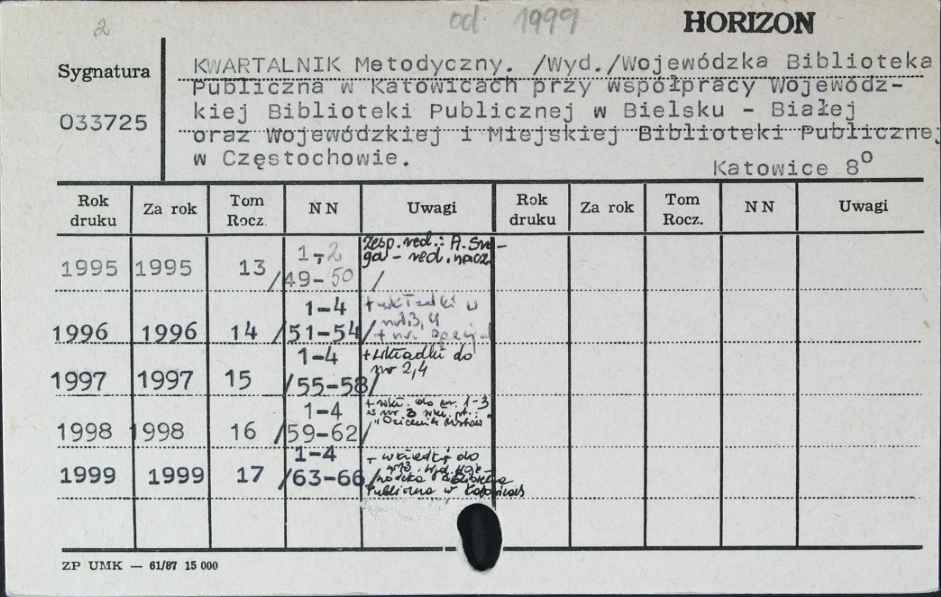 2
od. 1999
HORIZON
Sygnatura
033725
KWARTALNIK Metodyczny. /Wyd./Wojewódzka Biblioteka
Publiczna w Katowicach przy współpracy Wojewódz-
kiej Biblioteki Publicznej w Bielsku - Białej
oraz Wojewódzkiej i Miejskiej Biblioteki Publicznej
w Częstochowie.
Katowice 8⁰
Rok druku Za rok Tom Rocz. NN Uwagi Rok druku Za rok Tom Rocz. NN Uwagi
1995 1995 13 1-2 /49-50/ Zesp. red.: A.
- red. nacz.
1996 1996 14 1-4 /51-54/ + wkładki w
nr 3, 4
+ nr
1997 1997 15 1-4 /55-58/ + wkładki do
nr 2,4
1998 1998 16 1-4 /59-62/ + wkł. do nr. 1-3
w nr 3 wkł. pt.:
1999 1999 17 1-4 /63-66/ + wkładki do
nr 3.
Publiczna w Katowicach
ZP UMK — 61/87 15 000